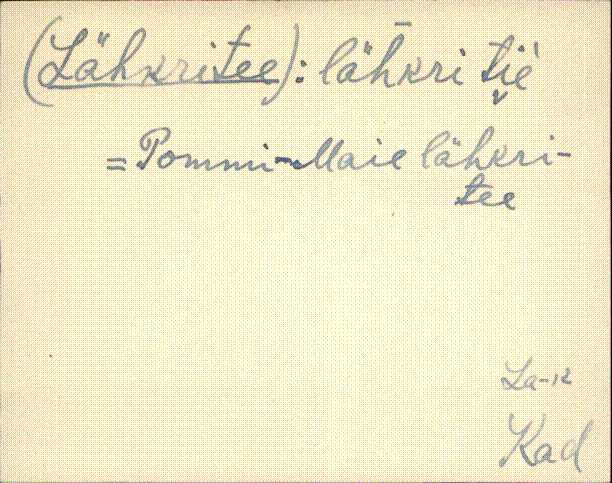 (Lähkritee): lähkri tie̬
= Pommi-Maie lähkri-
tee
La-12
Kad